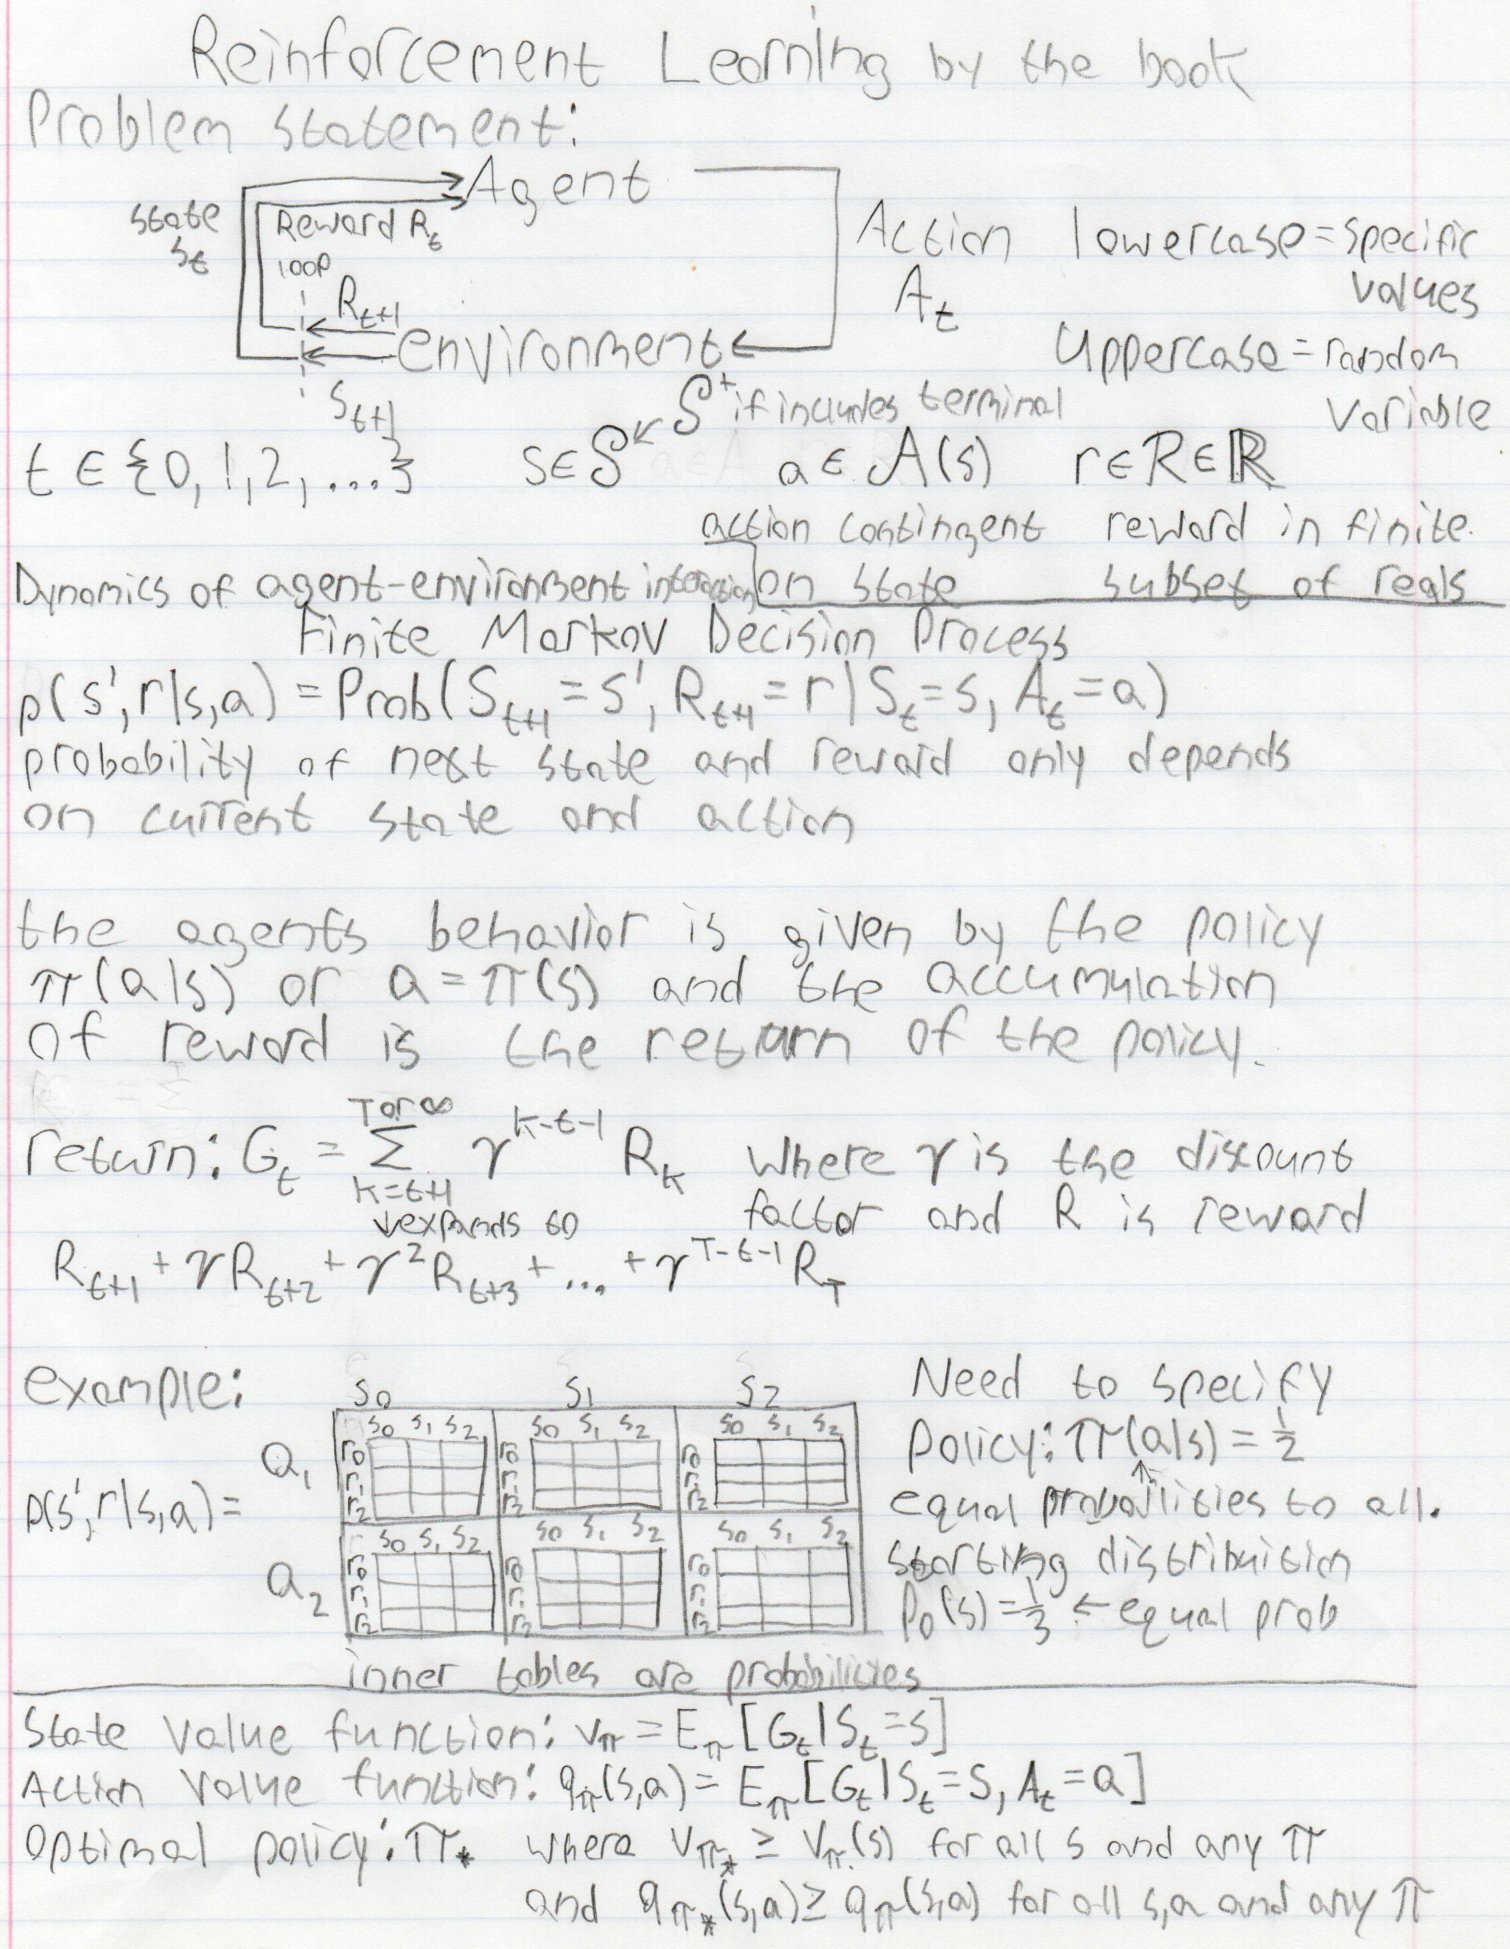 Reinforcement Learning by the book
Problem statement:
Agent
State S_t
Reward R_t
loop
R_{t+1}
environment
S_{t+1}
Action A_t
lowercase = specific values
Uppercase = random variable
t ∈ {0, 1, 2, ...}
s ∈ 𝒮 ← 𝒮⁺ if includes terminal
a ∈ 𝒜(s)
action contingent on state
r ∈ ℛ ∈ ℝ
reward in finite subset of reals
Dynamics of agent-environment interaction
Finite Markov Decision Process
p(s', r|s, a) = Prob(S_{t+1} = s', R_{t+1} = r | S_t = s, A_t = a)
probability of next state and reward only depends
on current state and action
the agents behavior is given by the policy
π(a|s) or a = π(s) and the accumulation
of reward is the return of the policy.
return: G_t = Σ_{k=t+1}^{T or ∞} γ^{k-t-1} R_k where γ is the discount
factor and R is reward
↓ expands to
R_{t+1} + γR_{t+2} + γ²R_{t+3} + ... + γ^{T-t-1} R_T
example:
p(s', r|s, a) =
S0 S1 S2
a1
S0 S1 S2 S0 S1 S2 S0 S1 S2
r0 r0 r0
r1 r1 r1
r2 r2 r2
a2
S0 S1 S2 S0 S1 S2 S0 S1 S2
r0 r0 r0
r1 r1 r1
r2 r2 r2
inner tables are probabilities
Need to specify
policy: π(a|s) = 1/2
↑
equal probailities to all.
starting distribuition
P_0(s) = 1/3 ← equal prob
State value function: v_π = E_π[G_t|S_t = s]
Action value function: q_π(s,a) = E_π[G_t|S_t = s, A_t = a]
Optimal policy: π_* where v_{π*} ≥ v_π(s) for all s and any π
and q_{π*}(s,a) ≥ q_π(s,a) for all s,a and any π